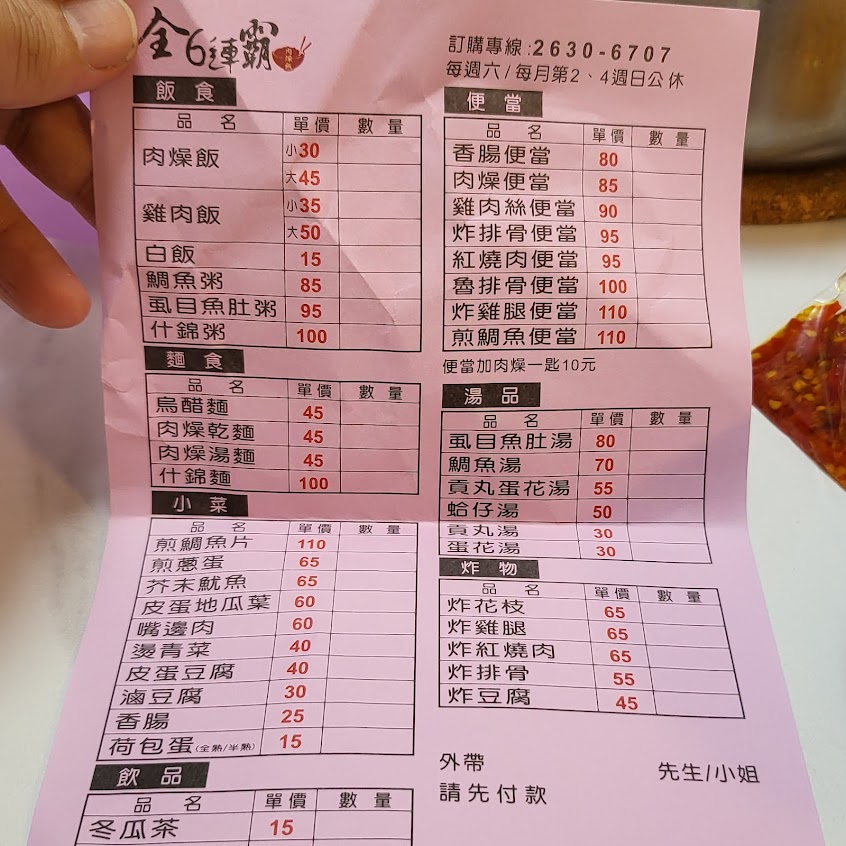 全6連霸
肉燥飯
訂購專線:2630-6707
每週六/每月第2、4週日公休
飯食
品名 單價 數量
肉燥飯 小30
大45
雞肉飯 小35
大50
白飯 15
鯛魚粥 85
虱目魚肚粥 95
什錦粥 100
麵食
品名 單價 數量
烏醋麵 45
肉燥乾麵 45
肉燥湯麵 45
什錦麵 100
小菜
品名 單價 數量
煎鯛魚片 110
煎蔥蛋 65
芥末魷魚 65
皮蛋地瓜葉 60
嘴邊肉 60
燙青菜 40
皮蛋豆腐 40
滷豆腐 30
香腸 25
荷包蛋(全熟/半熟) 15
飲品
品名 單價 數量
冬瓜茶 15
便當
品名 單價 數量
香腸便當 80
肉燥便當 85
雞肉絲便當 90
炸排骨便當 95
紅燒肉便當 95
魯排骨便當 100
炸雞腿便當 110
煎鯛魚便當 110
便當加肉燥一匙10元
湯品
品名 單價 數量
虱目魚肚湯 80
鯛魚湯 70
貢丸蛋花湯 55
蛤仔湯 50
貢丸湯 30
蛋花湯 30
炸物
品名 單價 數量
炸花枝 65
炸雞腿 65
炸紅燒肉 65
炸排骨 55
炸豆腐 45
外帶 先生/小姐
請先付款